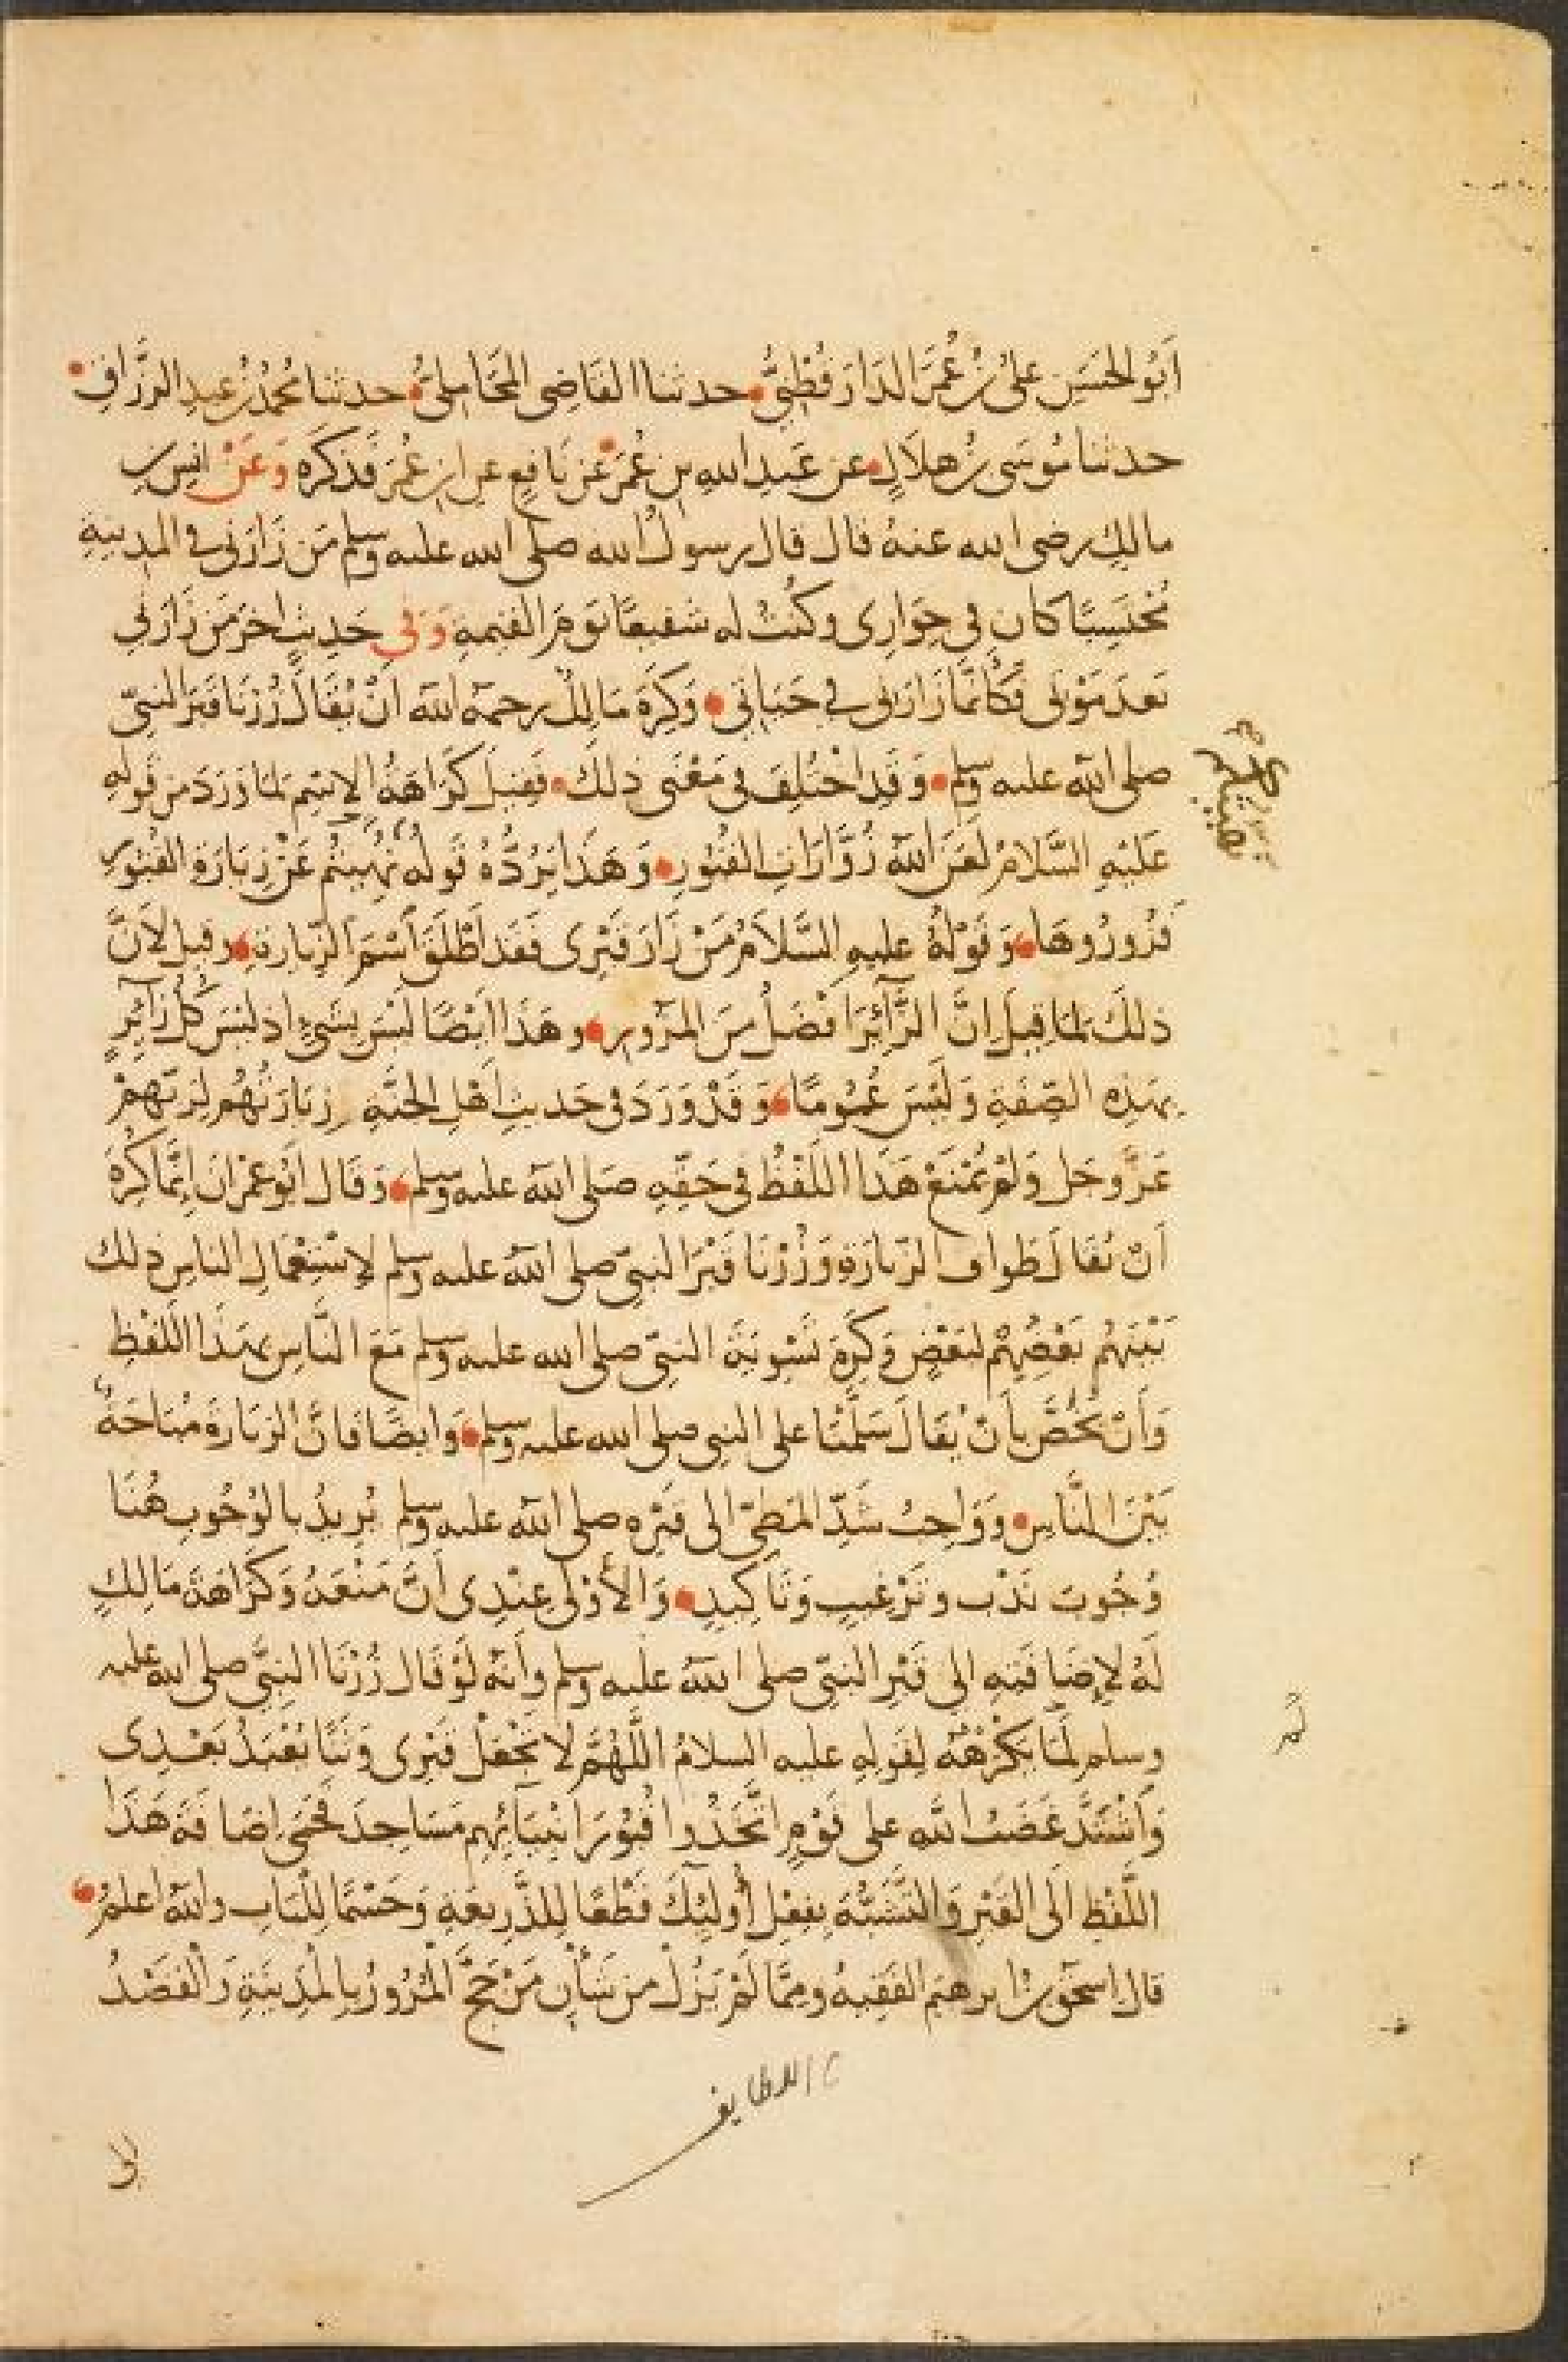 اَبُو الحَسَن علىُ بنُ عُمَرَ الدَارَقُطْنِىُّ حدثنا القَاضِى المَحَامِلىُّ حدثنا مُحَمَّدُ بنُ عبدِ الرَزَّاقِ
حدثنا مُوسَى بنُ هلاَلٍ عن عَبدِ اللهِ بنِ عُمَرَ عَن نَافِعٍ عن ابنِ عُمَرَ فَذكَرَه وَعَنْ انسِ بنِ
مالكٍ رضى الله عنهُ قال قال رسولُ الله صلى الله عليه وسلم مَن زَارَنى فى المدِينَةِ
مُحْتَسِبًا كان فى جِوَارِى وكُنْتُ له شَفِيعًا يَومَ القِيمةِ وَفى حَدِيثٍ اخرَ مَن زَارَنِى
بَعدَ مَوْتى فَكَأنَّمَا زَارَنى فى حَيَاتِى وَكَرِهَ مَالِكٌ رحمهُ اللهُ انْ يُقَالَ زُرْنَا قَبَر النبىِّ
صلى الله عليه وسلم وَقَدِ اخْتُلِفَ فى مَعْنَى ذلكَ فَقِيلَ كَرَاهَةُ الاِسْمِ لمَا وَرَدَ من قَولهِ
عَلَيْهِ السَّلامُ لَعَنَ اللهُ زُوَّارَاتِ القُبُورِ وَهَذَا يَرُدُّهُ قَولُهُ نُهِيتُم عَنْ زِيَارَةِ القُبُورِ
فَزُورُوهَا وَقَوْلُهُ عليهِ السَّلاَمُ مَنْ زَارَ قَبْرِى فَقَد اَطْلَقَ اسْمَ الزِّيارةِ وقيل لاَنَّ
ذلكَ لمَا قِيلَ اِنَّ الزَّآئِرَ اَفْضَلُ مِنَ المَزُورِ وهَذَا اَيْضًا لَيْسَ بِشَىْءٍ اذ ليْسَ كلُّ زَآئِرٍ
بهَذِهِ الصِّفَةِ وَلَيْسَ عُمُومًا وَقَدْ وَرَدَ فى حَديثِ اَهْلِ الجَنَّةِ زِيَارَتُهُم لِرَبِّهِمْ
عَزَّ وجَل وَلَمْ يُمْنَعْ هَذَا اللَفْظُ فى حَقِّهِ صَلى اللهُ عليه وسلم وَقَال اَبُو عِمْرَانَ اِنَّمَا كَرِهَ
اَنْ يُقَالَ طَواف الزِّيَارَةِ وَزُرْنَا قَبْرَ النبىِّ صلى اللهُ عليه وسلم لاِسْتِعْمَالِ الناسِ ذلك
بَيْنَهُم بَعْضُهُم لبَعْضٍ وَكَرِهَ تَسْوِيَةَ النبىِّ صلى الله عليه وسلم مَعَ النَّاسِ بهَذَا اللَفْظِ
وَاَنْ يُخَصَّ بأَنْ يُقَالَ سَلَّمْنَا على النبى صلى الله عليه وسلم وَايضًا فانَّ الزيَارةَ مُبَاحَةٌ
بَيْنَ النَّاسِ وَوَاجِبٌ شَدُّ المَطِىِّ الى قَبْرِه صلى اللهُ عليه وسلم يُرِيدُ بالوُجُوبِ هُنَا
وُجُوبَ نَدْبٍ وتَرْغِيبٍ وَتَاكِيدٍ وَالأَوْلى عِنْدِى اَنَّ مَنْعَهُ وَكَرَاهَةَ مَالِكٍ
لَهُ لإِضَافَتِهِ الى قَبْرِ النبىِّ صلى اللهُ عليه وسلم وأَنَّهُ لَوْ قَال زُرْنَا النبىَّ صلى الله عليه
وسلم لَمْ يَكْرَهْهُ لِقَولِهِ عليه السلامُ اللَّهُمَّ لا تَجْعَلْ قَبْرِى وَثَنًا يُعْبَدُ بَعْدِى
وَاشْتَدَّ غَضَبُ اللهِ على قَوْمٍ اتَّخَذُوا قُبُورَ انْبِيَآئِهِم مَسَاجِدَ فَحَمَى اضَافَةَ هَذَا
اللَّفْظِ اِلَى القَبْرِ وَالتَشَبُّهَ بِفِعْلِ أُولَئِكَ قَطْعًا لِلذَّرِيعَةِ وَحَسْمًا لِلْبَابِ واللهُ اعلمُ
قال اسحقُ بنُ ابرهيم الفَقِيهُ ومِمَّا لَمْ يَزَلْ مِن شَأْنِ مَنْ حَجَّ الْمُرُورُ بِالمَدِينَةِ وَالْقَصْدُ